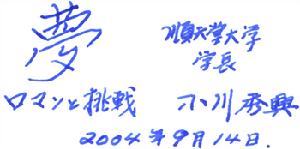 夢
順天堂大学
学長
ロマンと挑戦 小川秀興
2004年9月14日.